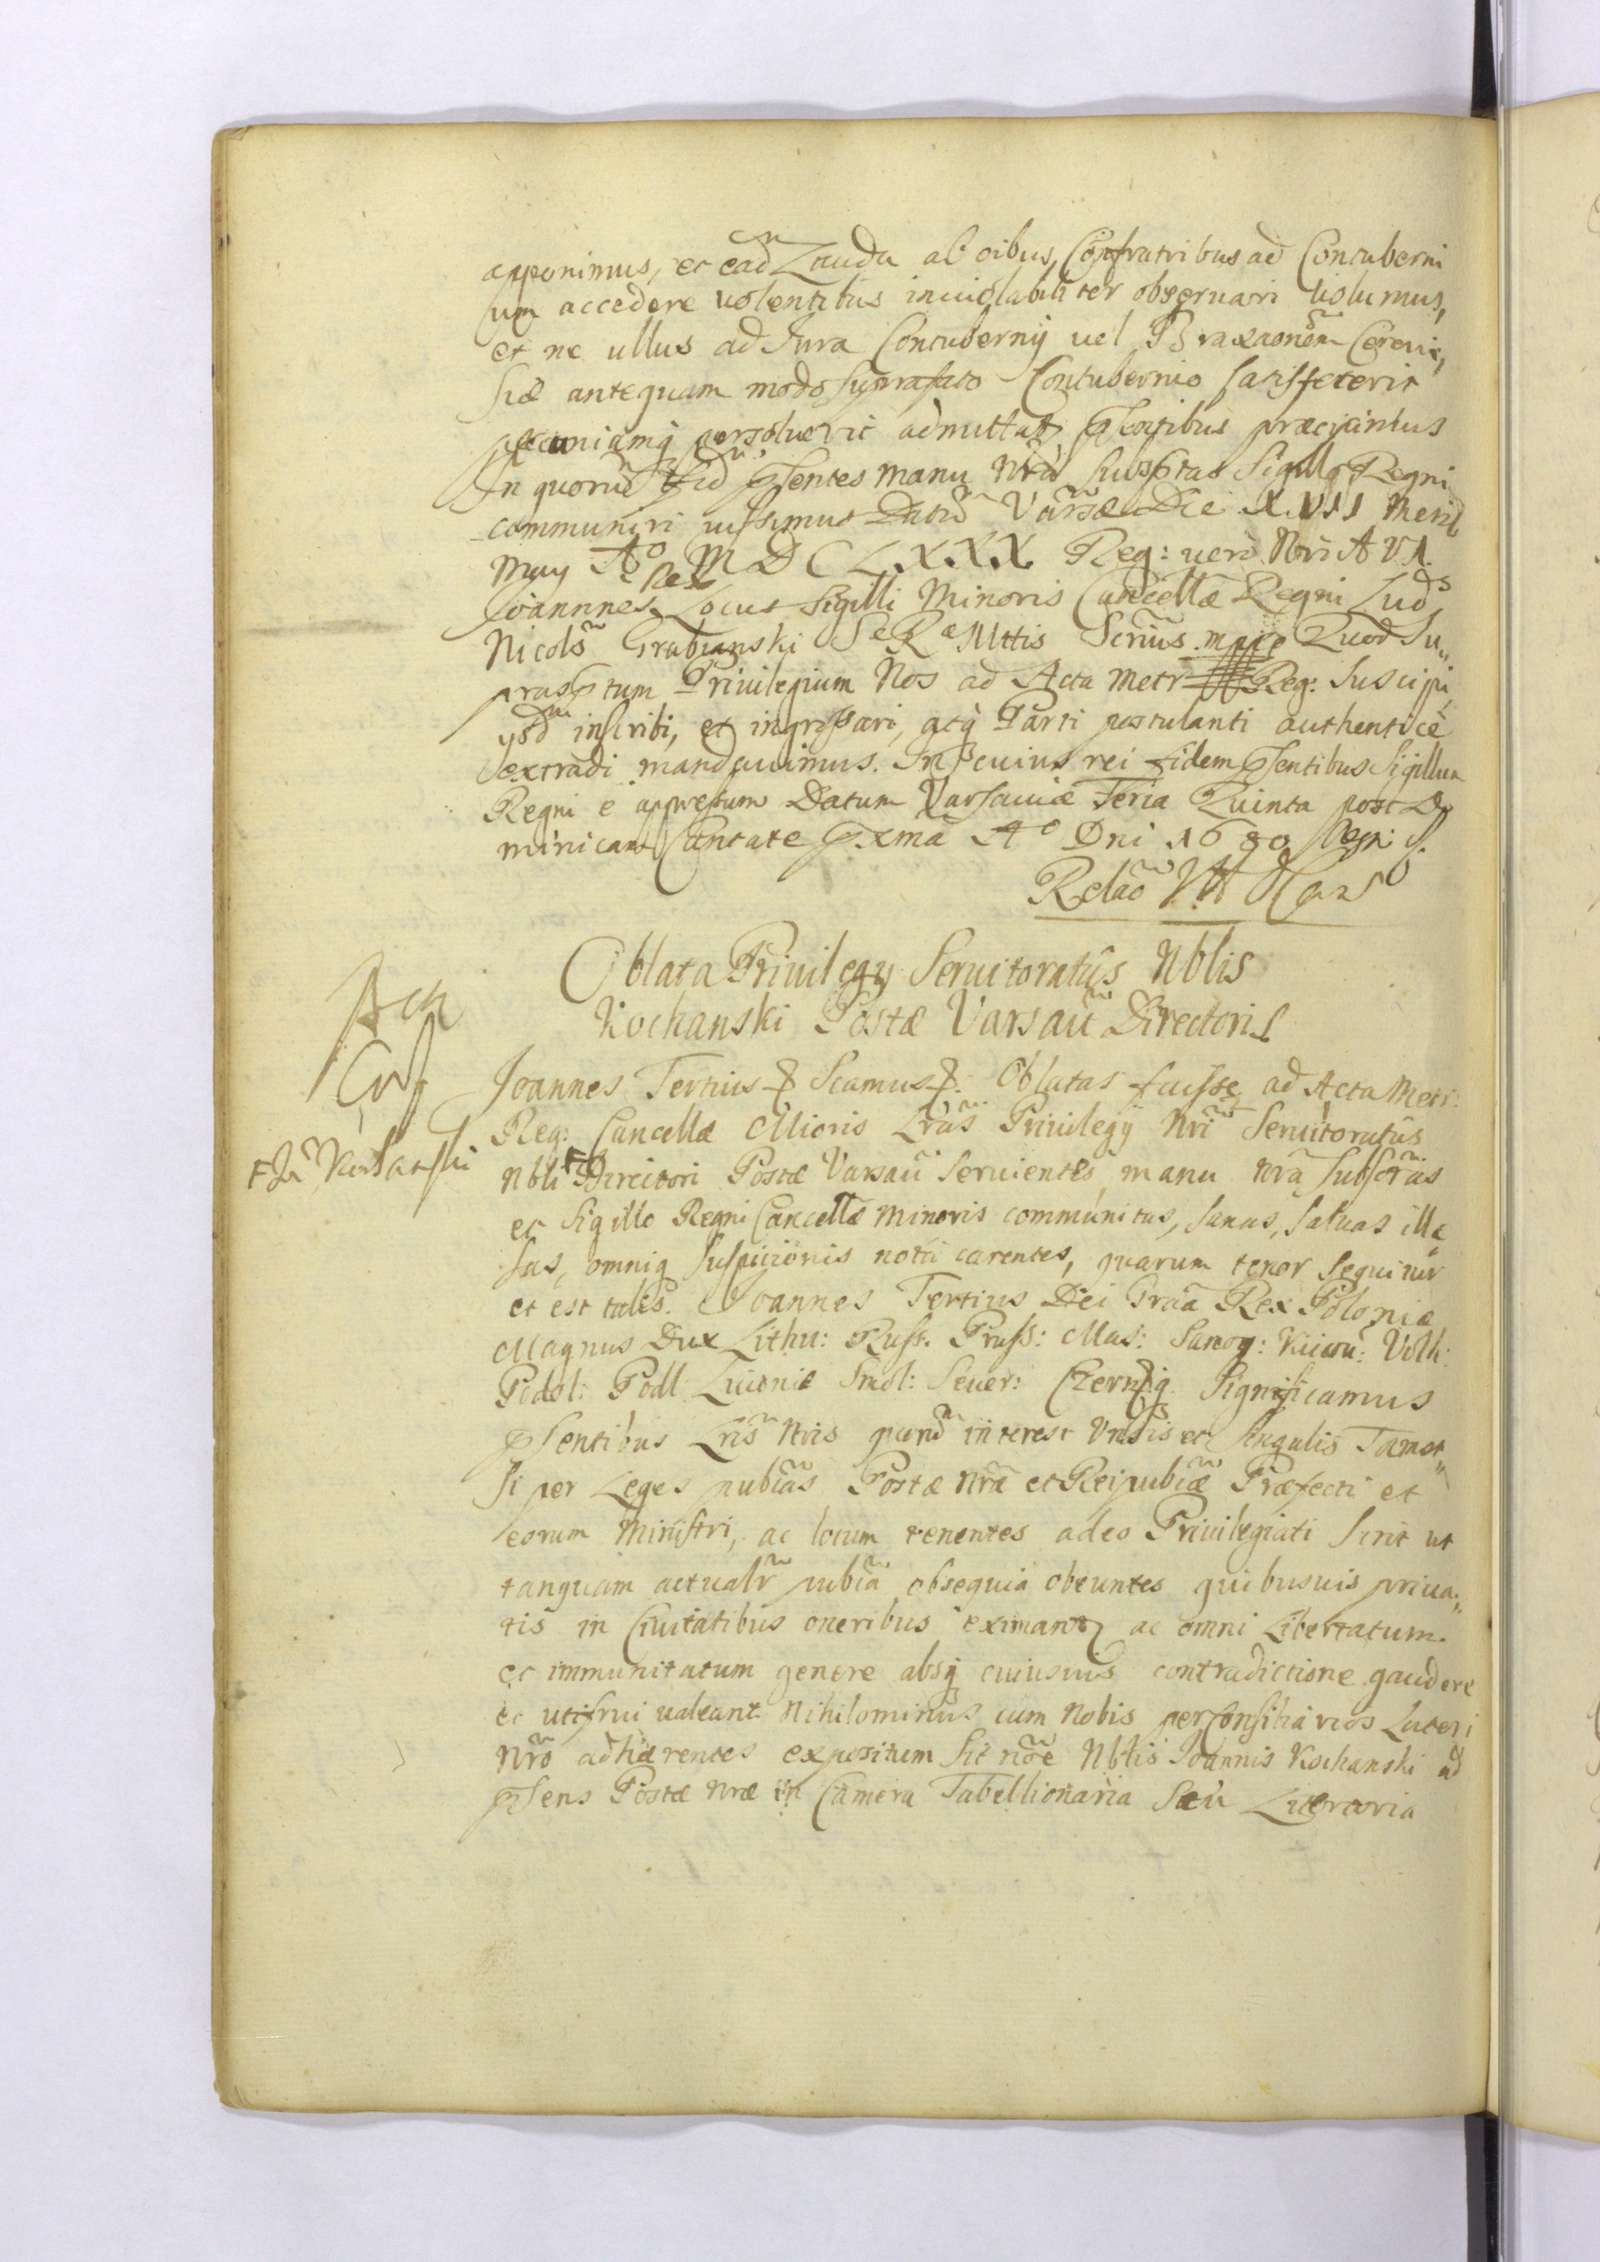 apponimus, et ead Lauda ab oibus, Confratribus ad Contuberni
um accedere volentibus inuiolabiliter obseruari uolumus,
et ne ullus ad Jura Contubernij uel Braxaonem Cereui,
siæ antequam modo suprafato Contubernio satisfecerit
pecuniamq persoluerit admittatz pntibus præcipimus
In quorũ fid pntes manu nrã subsptas Sigillo Regni
communiri iussimus Datũ Varsæ Die XVII Mens
May Aº MDCLXXX Reg: uero Nri A VI.
Joannnes Rex Locus Sigilli Minoris Cancellæ Regni Lud
Nicols Grabianski S R Mttis Secrius mpp Quod Su„
prasptum Priuilegium Nos ad Acta Metr Reg: Suscipi,
ysd inscribi, et ingrossari, atq Parti postulanti authenticè
extradi mandauimus. In cuius rei fidem psentibus Sigillum
Regni ẽ appressum Datum Varsauiæ Feria Quinta post Do
minicam Cantate pxmã Aº Dni 1680 Regni
Relãõ
Oblata Priuilegy Seruitoratus Nblis
Kochanski Postæ Varsau Directoris
Joannes Tertius Scamus Oblatas fuisse ad Acta Metr:
Reg: Cancellæ Mioris Lrãs Priuilegij Nri Seruitoratus
Nbli + Directori Postæ Varsau seruientes manu nrã subscras
+ Jã Kochanski
et Sigillo Regni Cancellæ Minoris communitas, sanas, saluas illæ
sas, omniq suspicionis notã carentes, quarum tenor sequitur
et est talis. Joannes Tertius Dei Grãã Rex Poloniæ
Magnus Dux Lithu: Russ. Pruss: Mas: Samog: Kiiou: Volh:
Podol: Podl Liuoniæ Smol: Seuer: Czernq Significamus
psentibus Lris Nris quorũ interest Vnsis et Singulis Tamet„
si per Leges publcas Postæ Nræ et Reipublcæ Præfecti et
eorum Ministri, ac locum tenentes adeo Priuilegiati sint ut
tanquam actualr publcã obsequia obeuntes quibusuis priua„
tis in Ciuitatibus oneribus eximantz ac omni Libertatum
et immunitatum genere absq cuiusuis contradictione gaudere
et utifrui ualeant Nihilominus cum Nobis per Consiliarios Lateri
Nrõ adhærentes expositum sit nõe Nblis Joannis Kochanski ad
psens Postæ nræ in Camera Tabellionaria seu Literaria